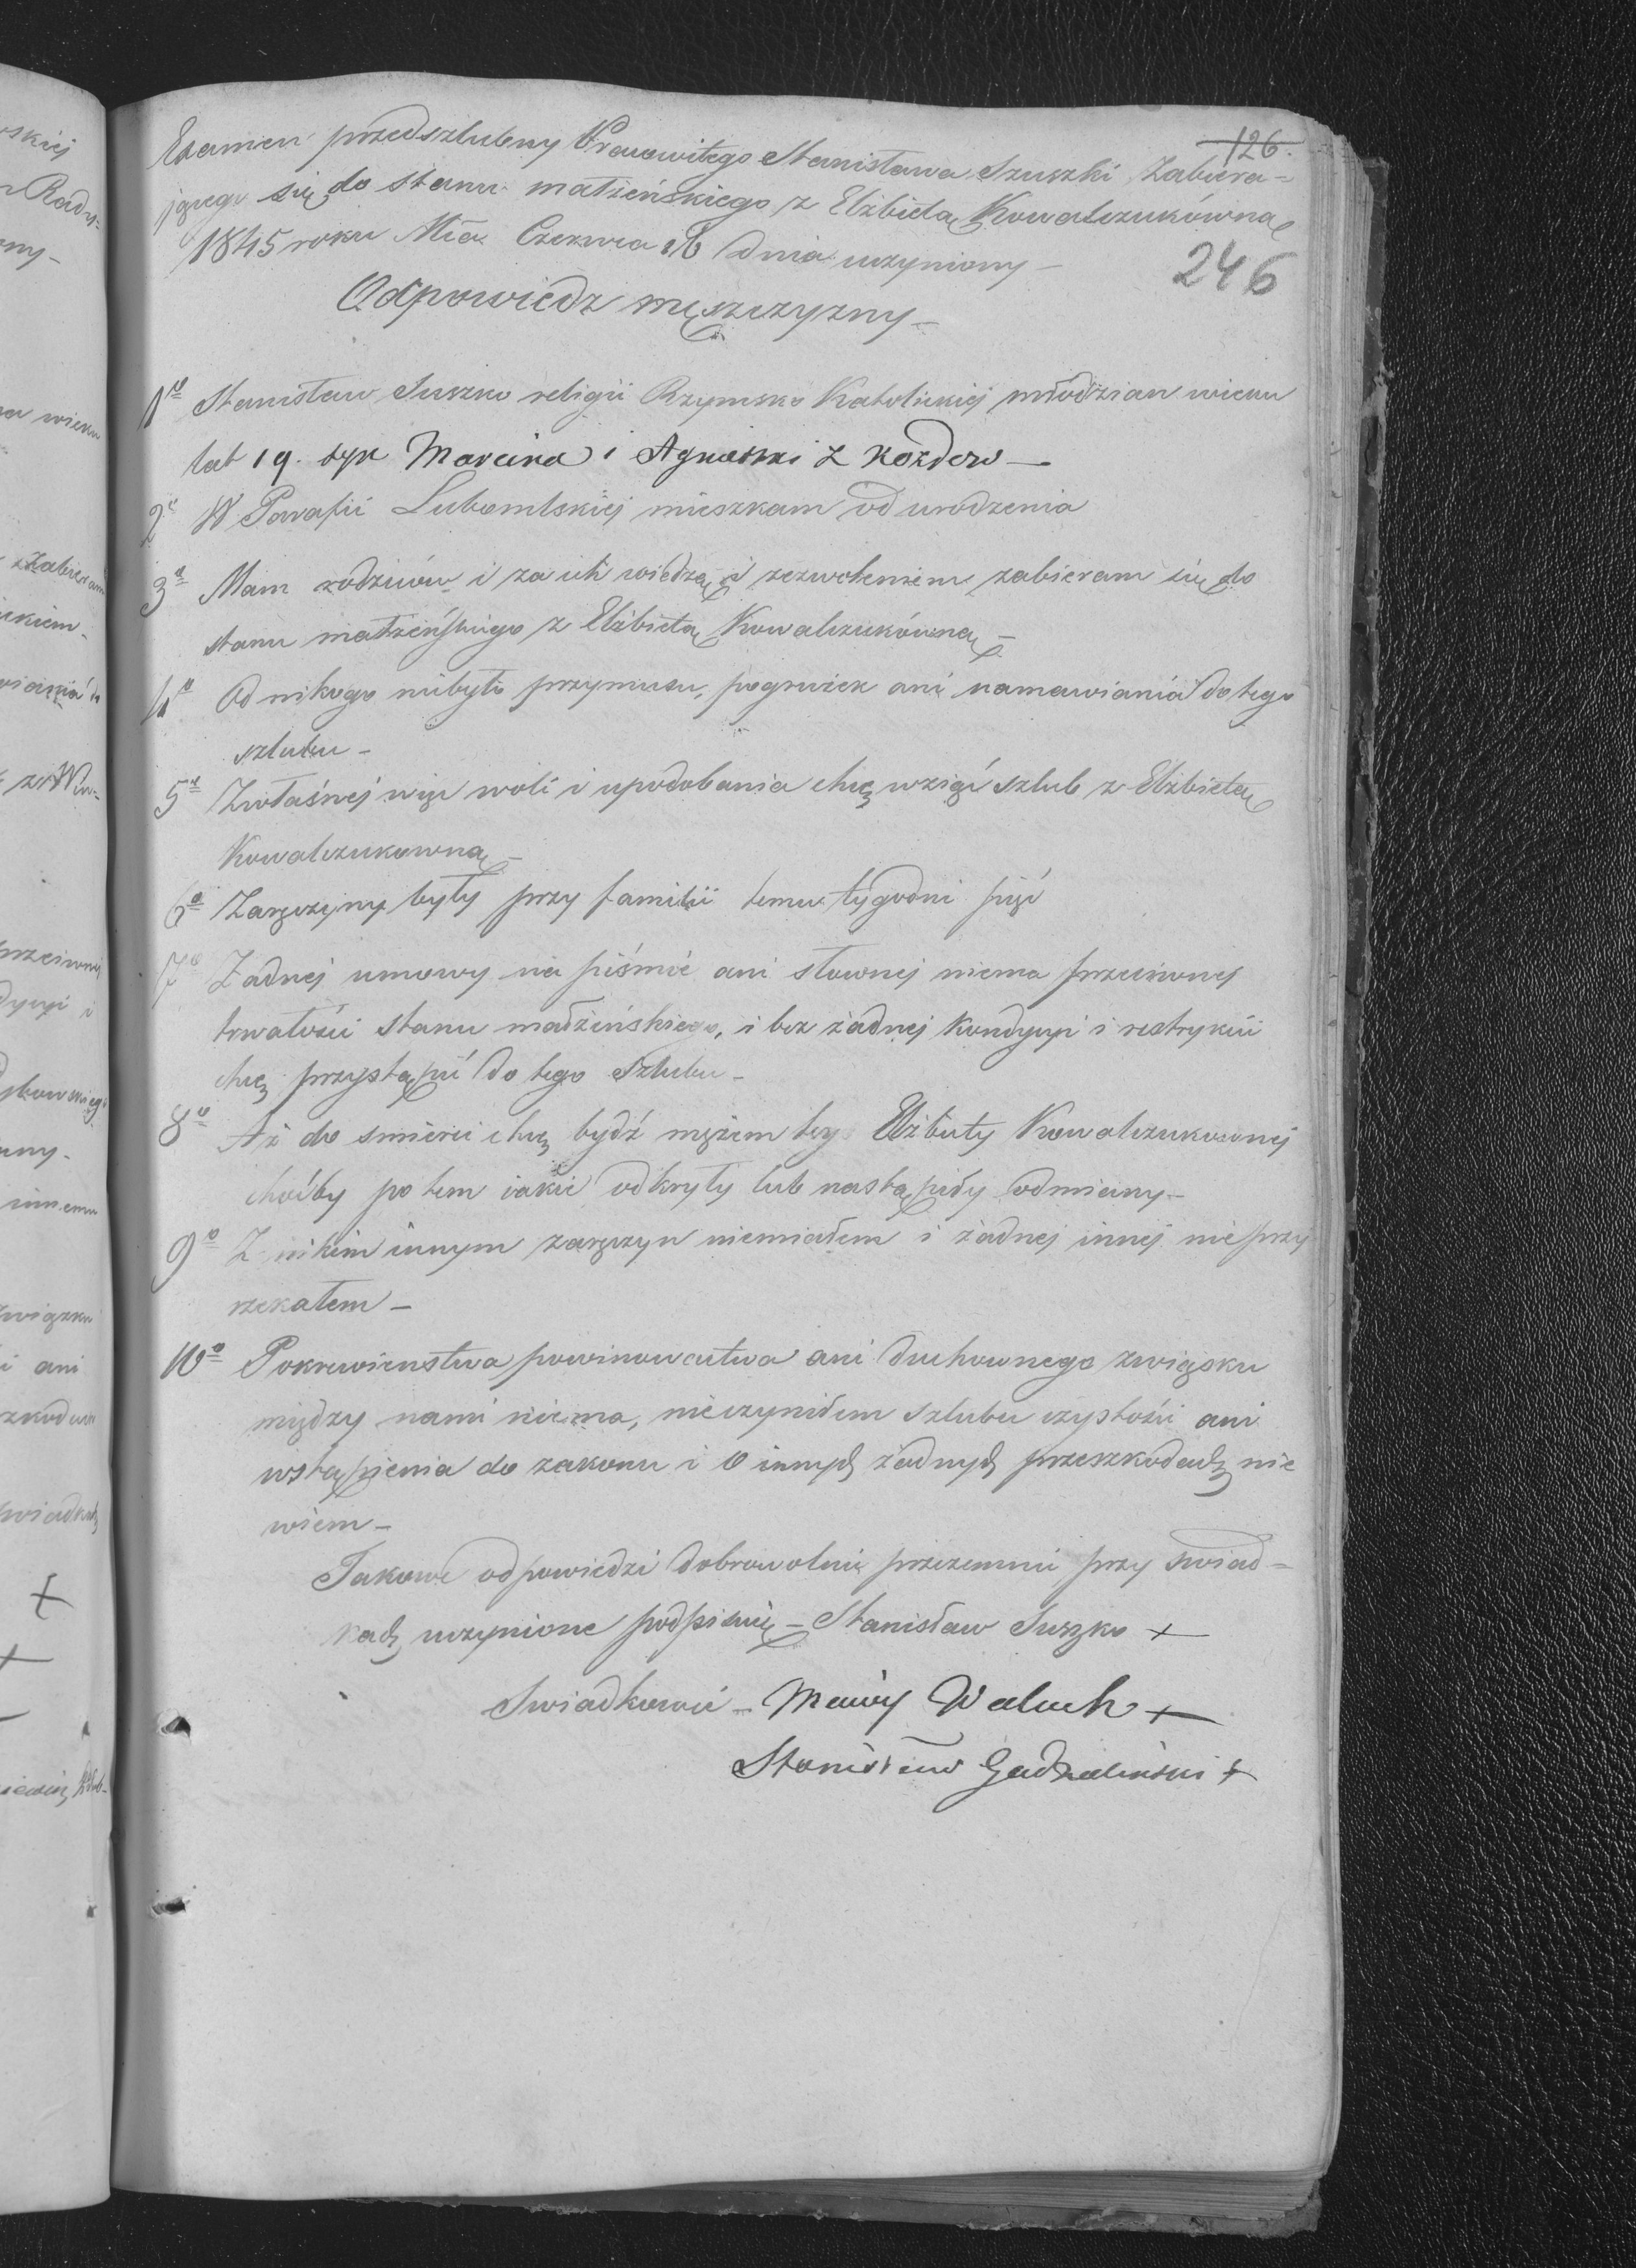 126.
Examen przedszlubny Pracowitego Stanisława Szuszki Zabiera=
jącego się do stanu małżeńskiego z Elżbietą Kowalczukówną
1845 roku Mca Czerwca 16 dnia uczyniony –
246
Odpowiedz męszczyzny –
1o Stanisław Suszko religii Rzymsko Katolickiej młodzian wieku
lat 19. syn Marcina i Agnieszki z Kozdrow –
2o W Parafii Lubomlskiej mieszkam od urodzenia
3o Mam rodziców i za ich wiedzą i zezwoleniem zabieram się do
stanu małżeńskiego z Elżbietą Kowalczukówną –
4o Od nikogo niebyło przymusu, pogrużek ani namawiania do tego
szlubu –
5o Zwłaśnej więc woli i upodobania chcę wziąć szlub z Elżbietą
Kowalczukowną –
6o Zaręczyny były przy familii temu tygodni pięć
7o Żadnej umowy na piśmie ani słownej niema przeciwnej
trwałości stanu małżeńskiego, i bez żadnej kondycyi i restrykcii
chcę przystąpić do tego szlubu –
8o Aż do smierci chcę bydź mężem tey Elżbiety Kowalczukownej
choćby potem iakie odkryły lub nastąpiły odmiany –
9o Z nikim innym zaręczyn niemiałem i żadnej innej nie przy
rzekałem –
10o Pokrewienstwa powinowactwa ani duchownego związku
między nami niema, nieczyniłem szlubu czystości ani
wstąpienia do zakonu i o innych żadnych przeszkodach nie
wiem –
Takowe odpowiedzi dobrowolnie przezemnie przy swiad=
kach uczynione podpisuię – Stanisław Suszko +
Swiadkowie – Maciey Waluch +
Stanisław +